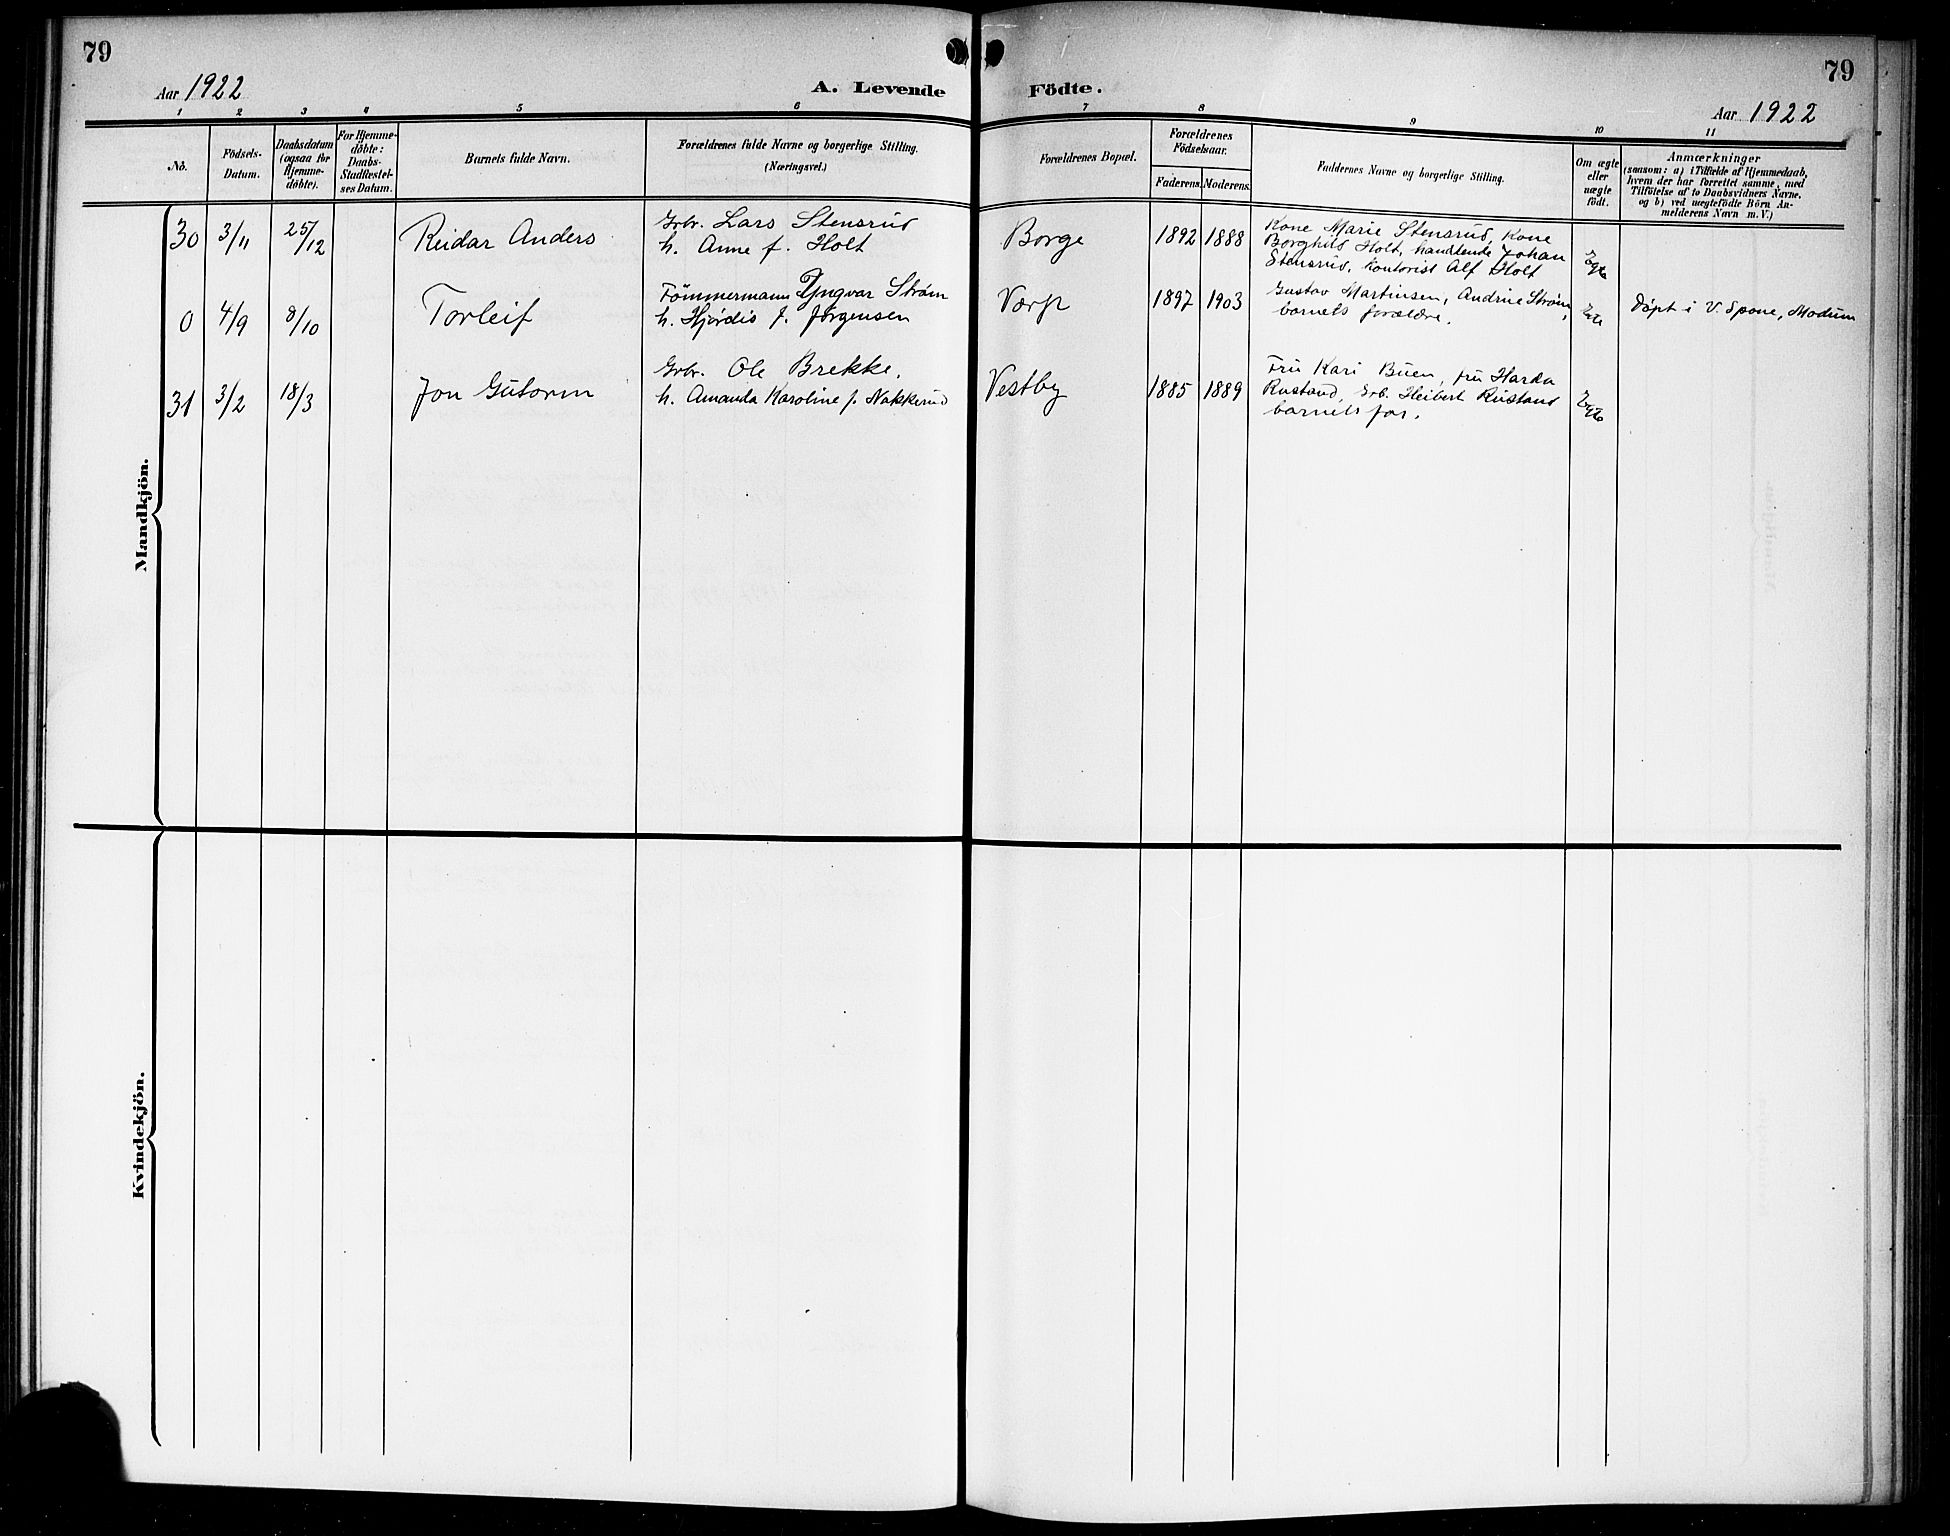 79
Aar 1922
A. Levende
Födte.
79
Aar 1922
1 2 3 4 5 6 7 8 9 10 11
No.
Födsels-
Datum.
Daabsdatum
(ogsaa for
Hjemme-
döbte).
For Hjemme-
döbte:
Daabs-
Stadfæstel-
ses Datum.
Barnets fulde Navn.
Forældrenes fulde Navne og borgerlige Stilling.
(Næringsvei.)
Forældrenes Bopæl.
Forældrenes
Födselsaar.
Faderens. Moderens.
Faddernes Navne og borgerlige Stilling.
Om ægte
eller
uægte
födt.
Anmærkninger
(saasom: a) i Tilfælde af Hjemmedaab,
hvem der har forrettet samme, med
Tilföielse af to Daabsvidners Navne,
og b) ved uægtefödte Börn An-
melderens Navn m. V.)
Mandkjön.
30 3/11 25/12 Reidar Anders
Grbr. Lars Stensrud
h. Anne f. Holt
Borge 1892 1888
Kone Marie Stensrud, Kone
Borghild Holt, handlende Johan
Stensrud, Kontorist Alf Holt
Egte
0 4/9 8/10 Torleif
Tömmermann Yngvar Strøm
h. Hjørdis f. Jørgensen
Vorp 1897 1903
Gustav Martinsen, Andrine Strøm,
barnets forældre.
Egte
Döpt i V. Spone, Modum
31 3/2 18/3 Jon Gutorm
Grbr. Ole Brekke.
h. Amanda Karoline f. Nakkerud
Vestby 1885 1889
Fru Kari Buen, fru Harda
Rustand, Grb. Heibert Rustand
barnets far.
Egte
Kvindekjön.